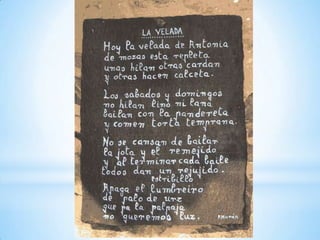 LA VELADA
Hoy la velada de Antonia
de mozas esta repleta
unas hilan otras cardan
y otras hacen calceta.
Los sabados y domingos
no hilan lino ni lana
bailan con la pandereta
y comen torta temprana.
No se cansan de bailar
la jota y el remejido
y al terminar cada baile
todos dan un rejujido.
Estribillo
Apaga el lumbreiro
de palo de urz
que pa la palpaja
no queremos luz.